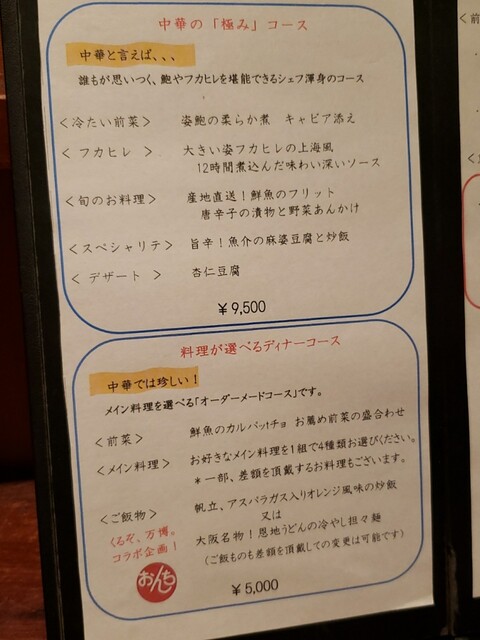 中華の「極み」コース
中華と言えば、、、
誰もが思いつく、鮑やフカヒレを堪能できるシェフ渾身のコース
＜冷たい前菜＞ 姿鮑の柔らか煮 キャビア添え
＜フカヒレ＞ 大きい姿フカヒレの上海風
12時間煮込んだ味わい深いソース
＜旬のお料理＞ 産地直送！鮮魚のフリット
唐辛子の漬物と野菜あんかけ
＜スペシャリテ＞ 旨辛！魚介の麻婆豆腐と炒飯
＜デザート＞ 杏仁豆腐
￥9,500
料理が選べるディナーコース
中華では珍しい！
メイン料理を選べる「オーダーメードコース」です。
＜前菜＞ 鮮魚のカルパッチョ お薦め前菜の盛合わせ
＜メイン料理＞ お好きなメイン料理を1組で4種類お選びください。
＊一部、差額を頂戴するお料理もございます。
＜ご飯物＞ 帆立、アスパラガス入りオレンジ風味の炒飯
又は
くるぞ、万博。
コラボ企画！
大阪名物！恩地うどんの冷やし担々麺
（ご飯ものも差額を頂戴しての変更は可能です）
おんち
￥5,000
＜前